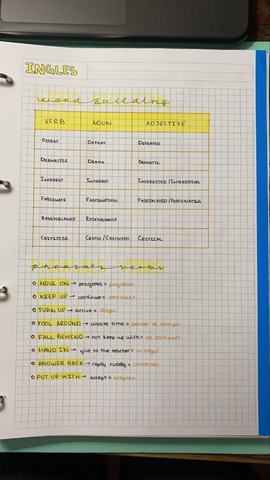 INGLES
Word building
VERB NOUN ADJECTIVE
DEFEAT DEFEAT DEFEATED
DRAMATISE DRAMA DRAMATIC
INTEREST INTEREST INTERESTED/INTERESTING
FASCINATE FASCINATION FASCINATED/FASCINATING
RESEMBLANCE RESEMBLANCE
CRITICISE CRITIC/CRITICISM CRITICAL
PHRASALS VERBS
MOVE ON → progress = progresar.
KEEP UP → continue = continuar.
TURN UP → arrive = llegar.
FOOL AROUND → waste time = perder el tiempo.
FALL BEHIND → not keep up with = no continuar.
HAND IN → give to the teacher = entregar.
ANSWER BACK → reply rudely = contestar.
PUT UP WITH → accept = aceptar.